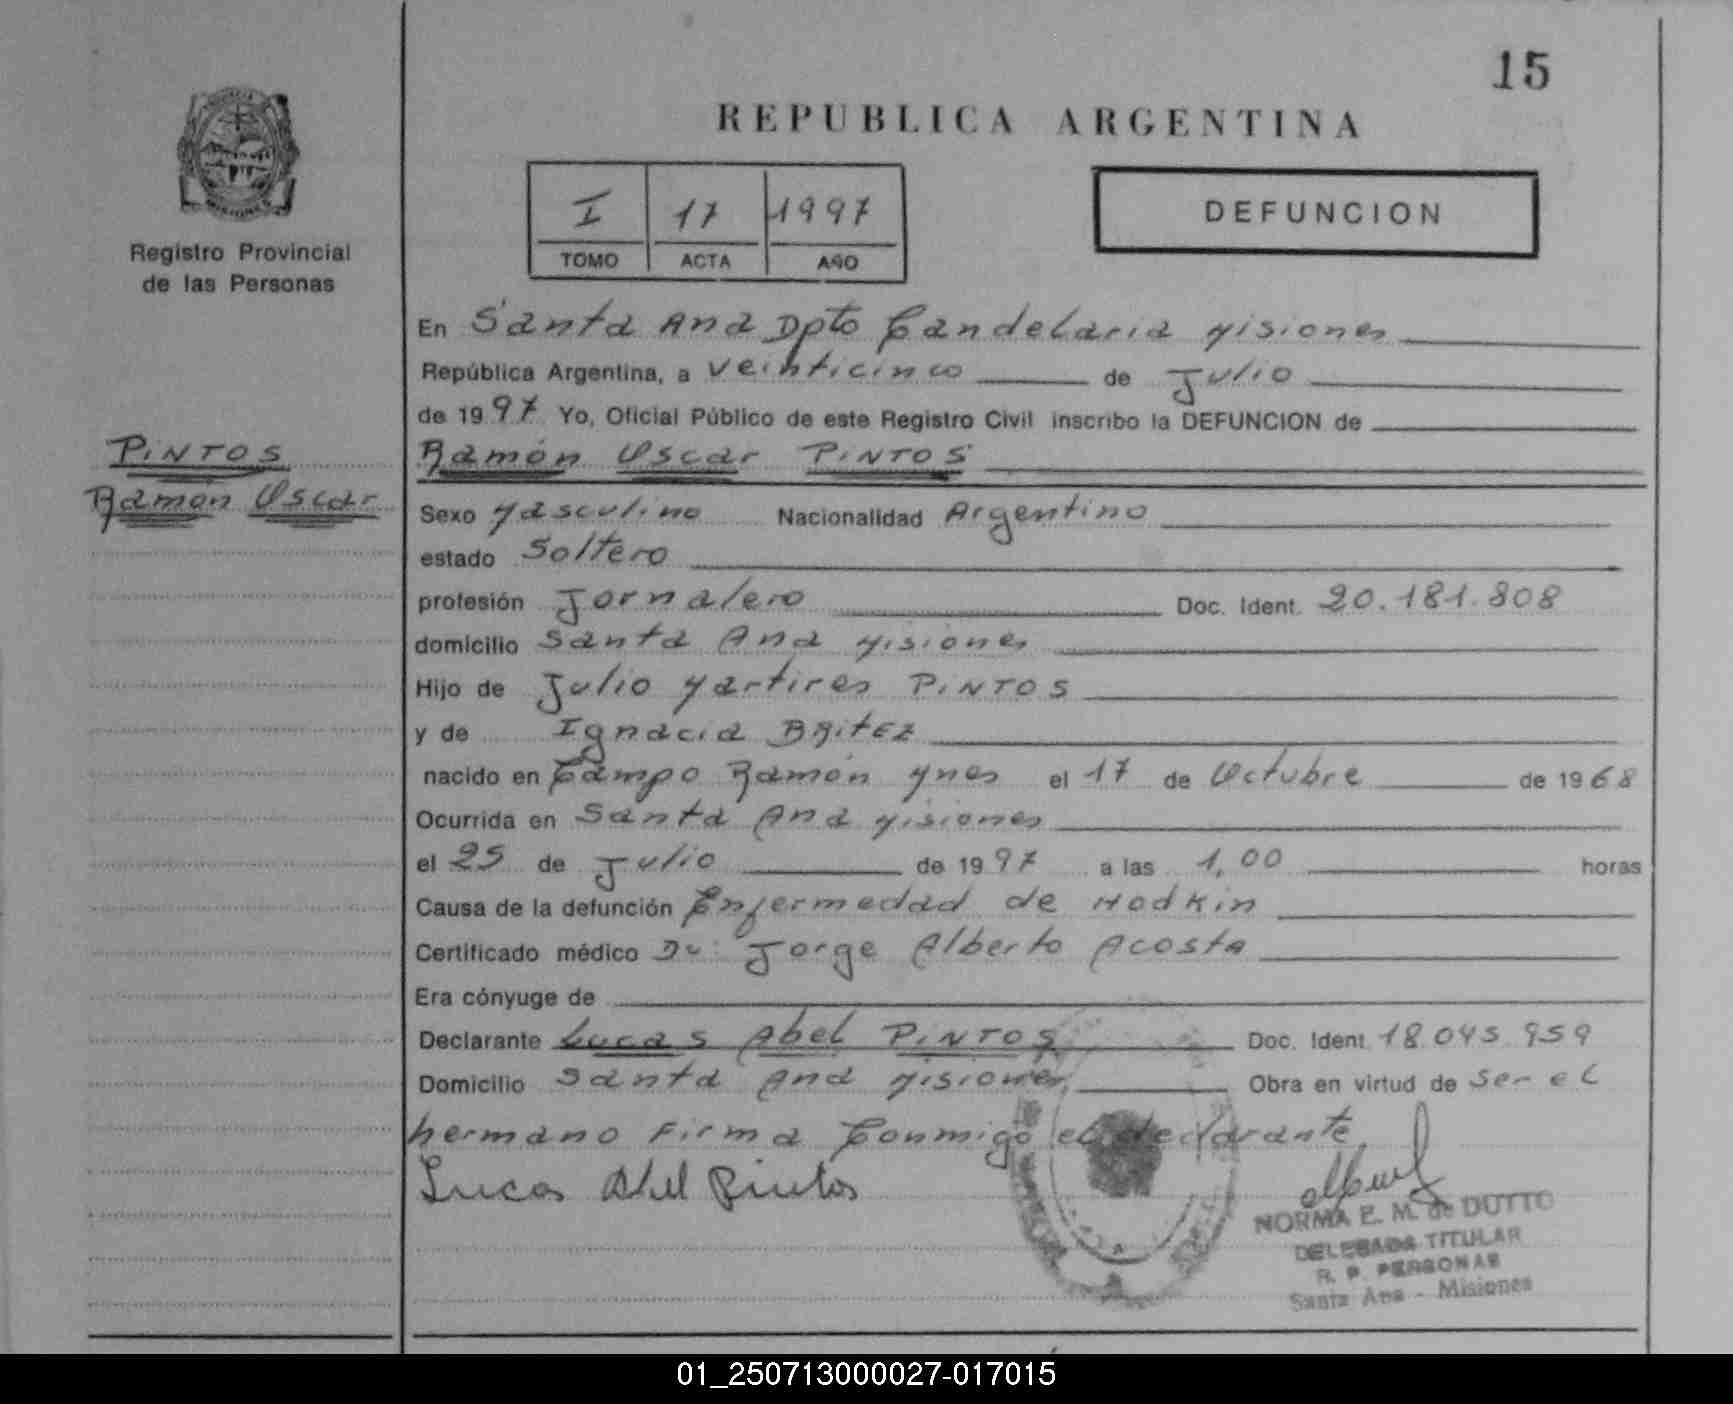 15
REPUBLICA ARGENTINA
I 17 1997
TOMO ACTA AÑO
DEFUNCION
Registro Provincial
de las Personas
En Santa Ana Dpto Candelaria Misiones
República Argentina, a veinticinco de Julio
de 1997 Yo, Oficial Público de este Registro Civil inscribo la DEFUNCION de
PINTOS
Ramón Oscar
Ramón Oscar PINTOS
Sexo Masculino Nacionalidad Argentino
estado Soltero
profesión Jornalero Doc. Ident. 20.181.808
domicilio Santa Ana Misiones
Hijo de Julio Martires PINTOS
y de Ignacia BRITEZ
nacido en Campo Ramón Mnes el 17 de Octubre de 1968
Ocurrida en Santa Ana Misiones
el 25 de Julio de 1997 a las 1,00 horas
Causa de la defunción Enfermedad de Hodkin
Certificado médico Dr: Jorge Alberto Acosta
Era cónyuge de
Declarante Lucas Abel PINTOS Doc. Ident 18.045.959
Domicilio Santa Ana Misiones Obra en virtud de ser el
hermano Firma Conmigo el declarante
Lucas Abel Pintos
NORMA E. M. de DUTTO
DELEGADA TITULAR
R. P. PERSONAS
Santa Ana - Misiones
01_250713000027-017015